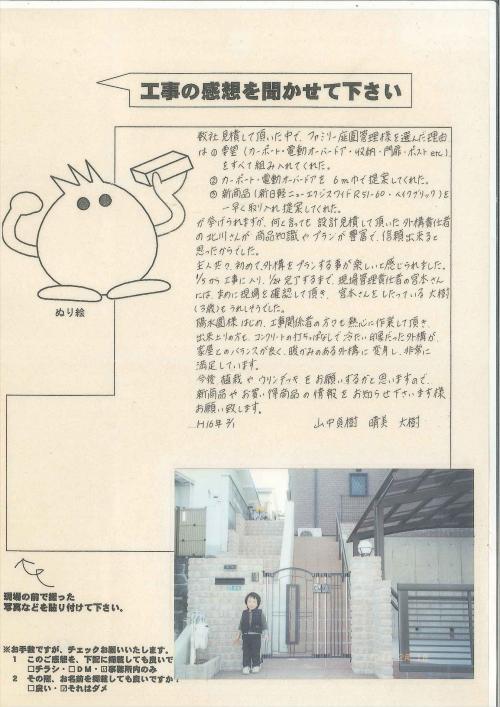 工事の感想を聞かせて下さい
数社見積して頂いた中で、ファミリー庭園管理様を選んだ理由
は ① 要望 (カーポート・電動オーバードア・収納・門扉・ポスト etc.)
をすべて組み入れてくれた。
② カーポート・電動オーバードアを 6m で 提案してくれた。
③ 新商品 (新日軽ニューエクジスワイドRS11-60・ベイクブリック)を
一早く取り入れ 提案してくれた。
が挙げられますが、何と言っても 設計見積して頂いた外構責任者
の 北川さんが 商品知識やプランが豊富で、信頼出来ると
思ったからでした。
初めて、外構をプランする事が楽しいと感じられました。
から工事に入り、完了するまで、現場管理責任者の宮本さん
には、まめに現場を確認して頂き、宮本さんをしたっている 大樹
(3歳)もうれしそうでした。
陽水園様はじめ、工事関係者の方々も熱心に作業して頂き、
出来上りの方も、コンクリートの打ちっぱなしで冷たい印象だった外構が、
家屋とのバランスが良く、暖かみのある外構に変身し、非常に
満足しています。
今後 植栽や ウッドデッキをお願いするかと思いますので、
新商品やお買い得商品の情報をお知らせ下さいます様
お願い致します。
H16年 2/1 山中 晴美 大樹
ぬり絵
現場の前で撮った
写真などを貼り付けて下さい。
※お手数ですが、チェックお願いいたします。
1 このご感想を、下記に掲載しても良いで
□チラシ・□DM・☑事務所内のみ
2 その際、お名前を掲載しても良いですか
□良い・☑それはダメ